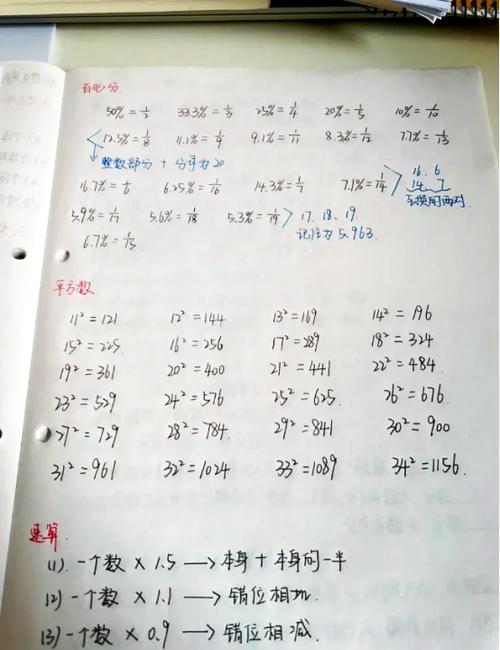 百化分.
50%=1/2 33.3%=1/3 25%=1/4 20%=1/5 10%=1/10
12.5%=1/8 11.1%=1/9 9.1%=1/11 8.3%=1/12 7.7%=1/13
整数部分 + 分母为20
16.7%=1/6 6.25%=1/16 14.3%=1/7 7.1%=1/14 16. 6
14. 7
互换的两对.
5.9%=1/17 5.6%=1/18 5.3%=1/19 17. 18. 19.
记住为5.963.
6.7%=1/15
平方数
11²=121 12²=144 13²=169 14²=196
15²=225. 16²=256 17²=289 18²=324
19²=361 20²=400 21²=441 22²=484.
23²=529 24²=576 25²=625. 26²=676.
27²=729 28²=784. 29²=841 30²=900
31²=961 32²=1024 33²=1089 34²=1156.
速算.
(1). 一个数 × 1.5 → 本身 + 本身的一半
(2) 一个数 × 1.1 → 错位相加.
(3) 一个数 × 0.9 → 错位相减.